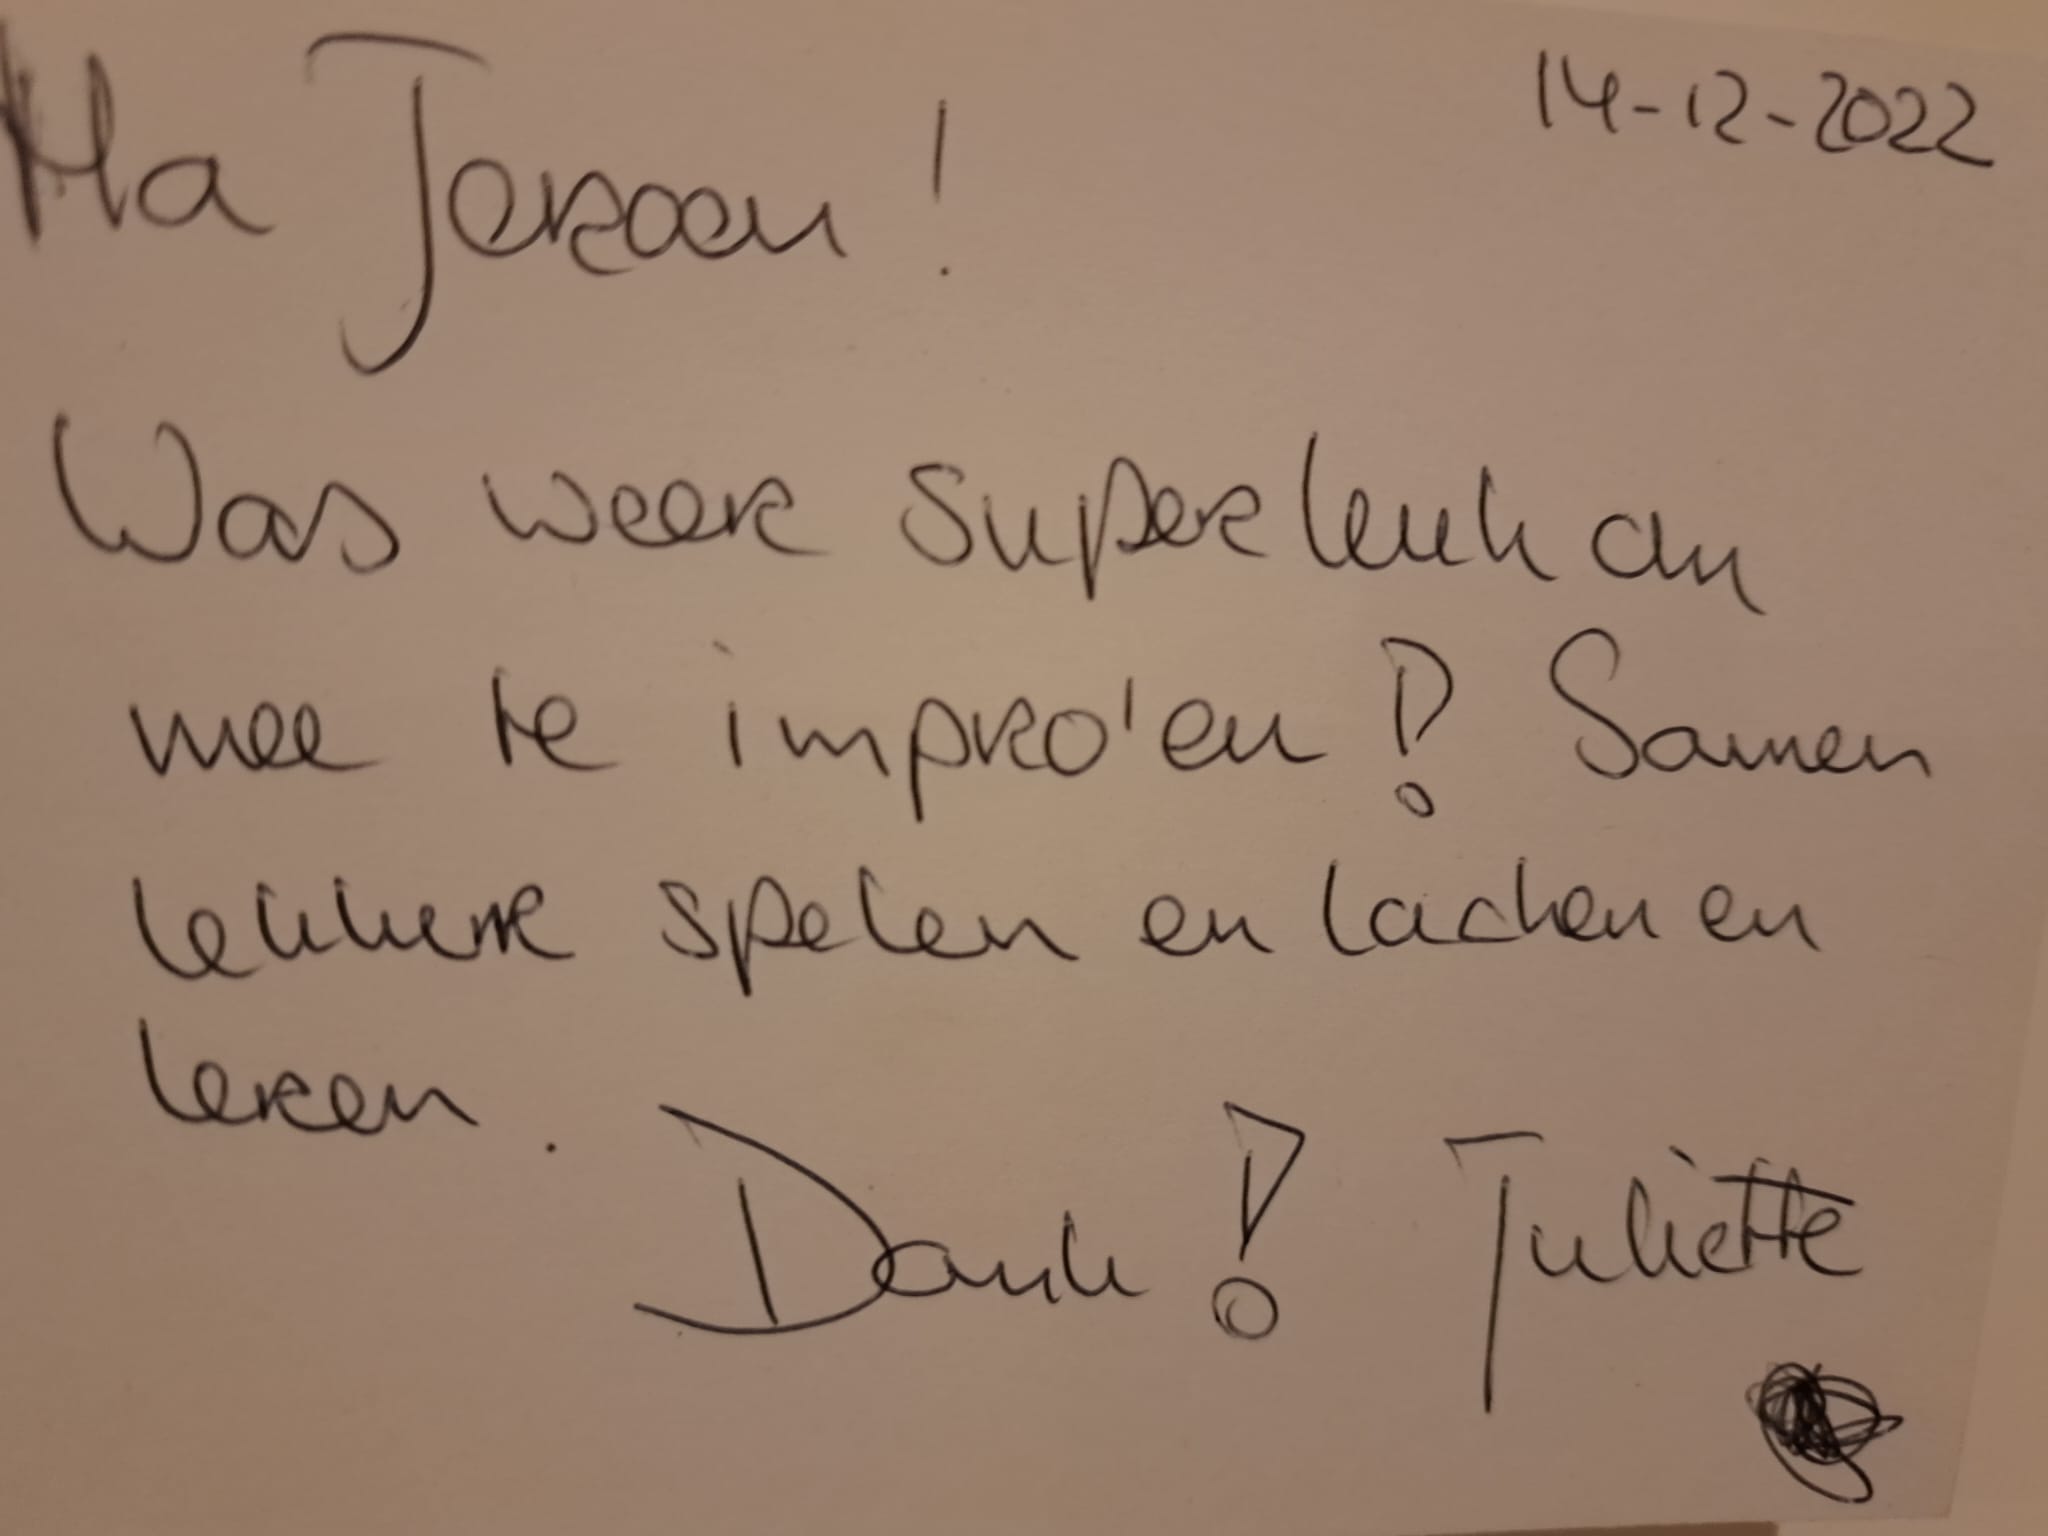 Ha Jeroen!
14-12-2022
Was weer superleuk om
mee te impro'en! Samen
lekker spelen en lachen en
leren.
Dank! Juliette